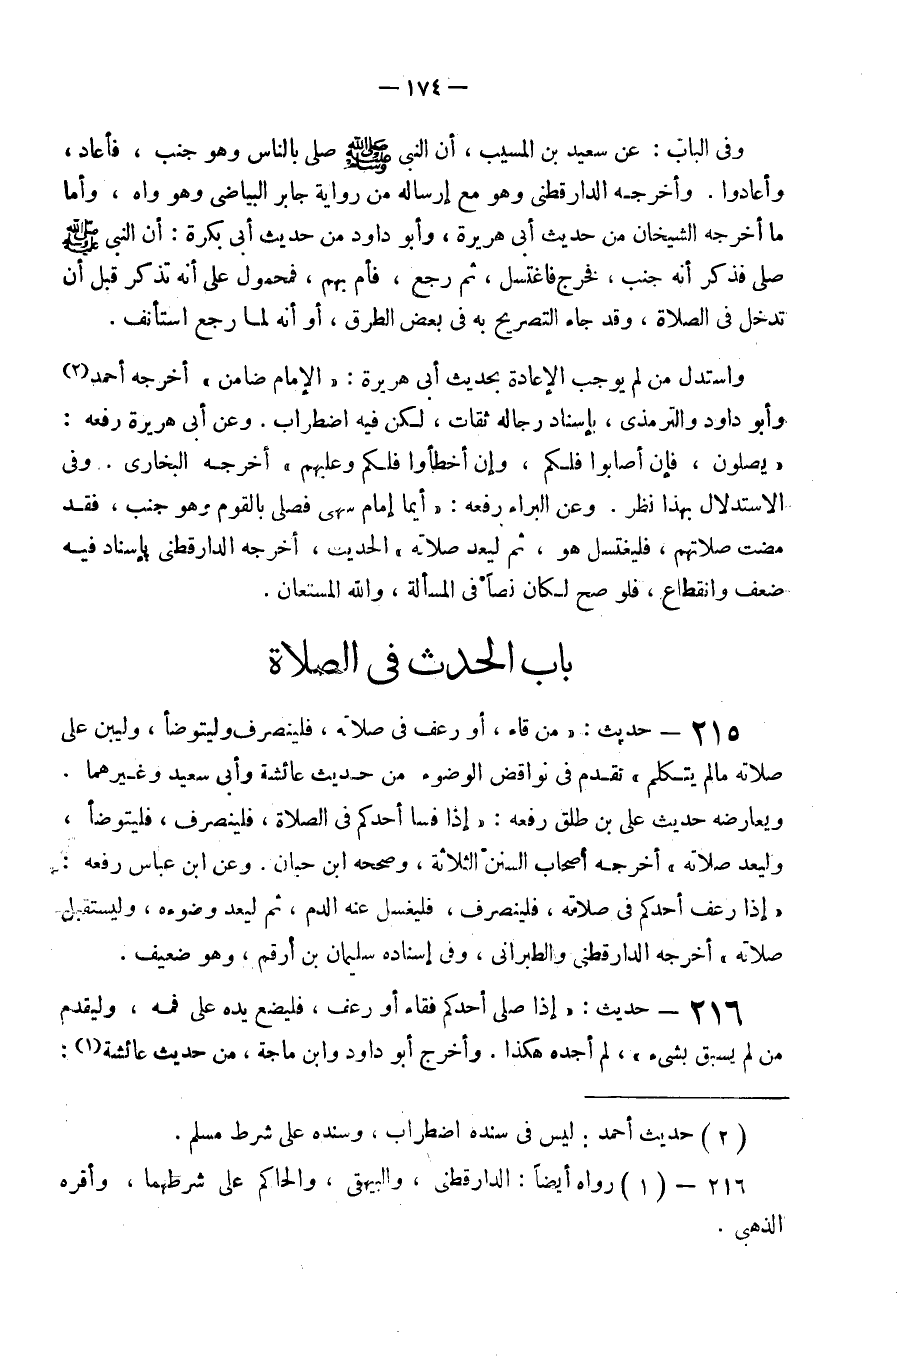 — ١٧٤ —
وفى الباب : عن سعيد بن المسيب ، أن النبي ﷺ صلى بالناس وهو جنب ، فأعاد ،
وأعادوا . وأخرجه الدارقطنى وهو مع إرساله من رواية جابر البياضى وهو واه ، وأما
ما أخرجه الشيخان من حديث أبى هريرة ، وأبو داود من حديث أبى بكرة : أن النبى ﷺ
صلى فذكر أنه جنب ، فخرج فاغتسل ، ثم رجع ، فأم بهم ، فمحمول على أنه تذكر قبل أن
تدخل فى الصلاة ، وقد جاء التصريح به فى بعض الطرق ، أو أنه لما رجع استأنف .
واستدل من لم يوجب الإعادة بحديث أبى هريرة : « الإمام ضامن » أخرجه أحمد(٢)
وأبو داود والترمذى ، بإسناد رجاله ثقات ، لكن فيه اضطراب . وعن أبى هريرة رفعه :
« يصلون ، فإن أصابوا فلكم ، وإن أخطأوا فلكم وعليهم » أخرجه البخارى . وفى
الاستدلال بهذا نظر . وعن البراء رفعه : « أيما إمام سهى فصلى بالقوم وهو جنب ، فقد
مضت صلاتهم ، فليغتسل هو ، ثم ليعد صلاته » الحديث ، أخرجه الدارقطنى بإسناد فيه
ضعف وانقطاع ، فلو صح لكان نصاً فى المسألة ، والله المستعان .
باب الحدث فى الصلاة
٢١٥ — حديث : « من قاء ، أو رعف فى صلاته ، فلينصرف وليتوضأ ، وليبن على
صلاته مالم يتكلم » تقدم فى نواقض الوضوء من حديث عائشة وأبى سعيد وغيرهما .
ويعارضه حديث على بن طلق رفعه : « إذا فسا أحدكم فى الصلاة ، فلينصرف ، فليتوضأ ،
وليعد صلاته » أخرجه أصحاب السنن الثلاثة ، وصححه ابن حبان . وعن ابن عباس رفعه :
« إذا رعف أحدكم فى صلاته ، فلينصرف ، فليغسل عنه الدم ، ثم ليعد وضوءه ، وليستقبل
صلاته » أخرجه الدارقطنى والطبرانى ، وفى إسناده سليمان بن أرقم ، وهو ضعيف .
٢١٦ — حديث : « إذا صلى أحدكم فقاء أو رعف ، فليضع يده على فمه ، وليقدم
من لم يسبق بشىء » ، لم أجده هكذا . وأخرج أبو داود وابن ماجة ، من حديث عائشة(١) :
( ٢ ) حديث أحمد : ليس فى سنده اضطراب ، وسنده على شرط مسلم .
٢١٦ — ( ١ ) رواه أيضاً : الدارقطنى ، والبيهقى ، والحاكم على شرطهما ، وأقره
الذهبى .